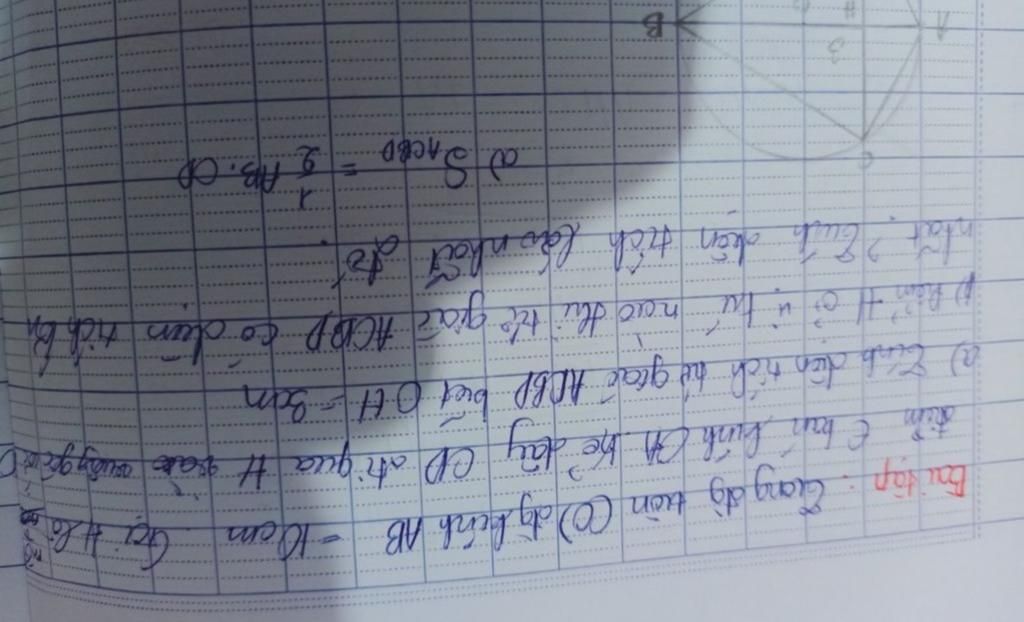 Bài tập : Trong đg tròn (O) đg kính AB = 10 cm Gọi H là
điểm E bán kính OA kẻ dây CD đi qua H vuông góc
a) Tính diện tích tứ giác ACBD biết OH = 3cm
b) Điểm H ở vị trí nào thì tứ giác ACBD có diện tích lớn
nhất ? Tính diện tích lớn nhất đó.
a) S ACBD = 1/2 AB. CD
C
3
A H B